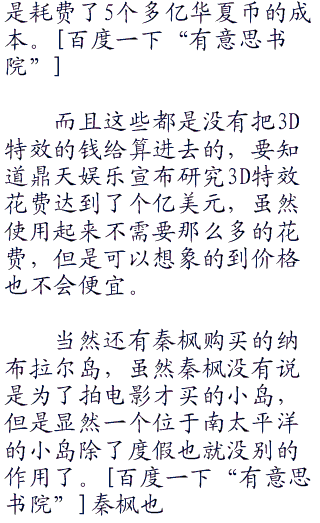 是耗费了5个多亿华夏币的成
本。[百度一下“有意思书
院”]
而且这些都是没有把3D
特效的钱给算进去的，要知
道鼎天娱乐宣布研究3D特效
花费达到了个亿美元，虽然
使用起来不需要那么多的花
费，但是可以想象的到价格
也不会便宜。
当然还有秦枫购买的纳
布拉尔岛，虽然秦枫没有说
是为了拍电影才买的小岛，
但是显然一个位于南太平洋
的小岛除了度假也就没别的
作用了。[百度一下“有意思
书院”]秦枫也